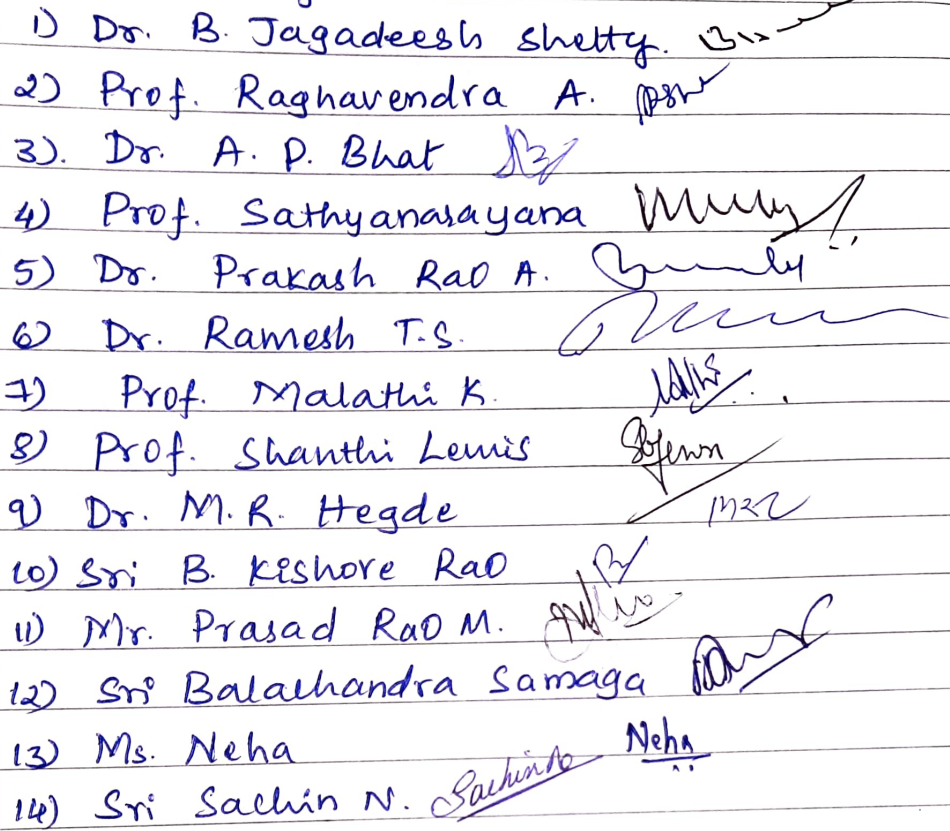 1) Dr. B. Jagadeesh Shetty.
2) Prof. Raghavendra A.
3). Dr. A. P. Bhat
4) Prof. Sathyanarayana
5) Dr. Prakash Rao A.
6) Dr. Ramesh T.S.
7) Prof. Malathi K.
8) Prof. Shanthi Lewis
9) Dr. M.R. Hegde
10) Sri B. Kishore Rao
11) Mr. Prasad Rao M.
12) Sri Balachandra Samaga
13) Ms. Neha Neha
14) Sri Sachin N. Sachin